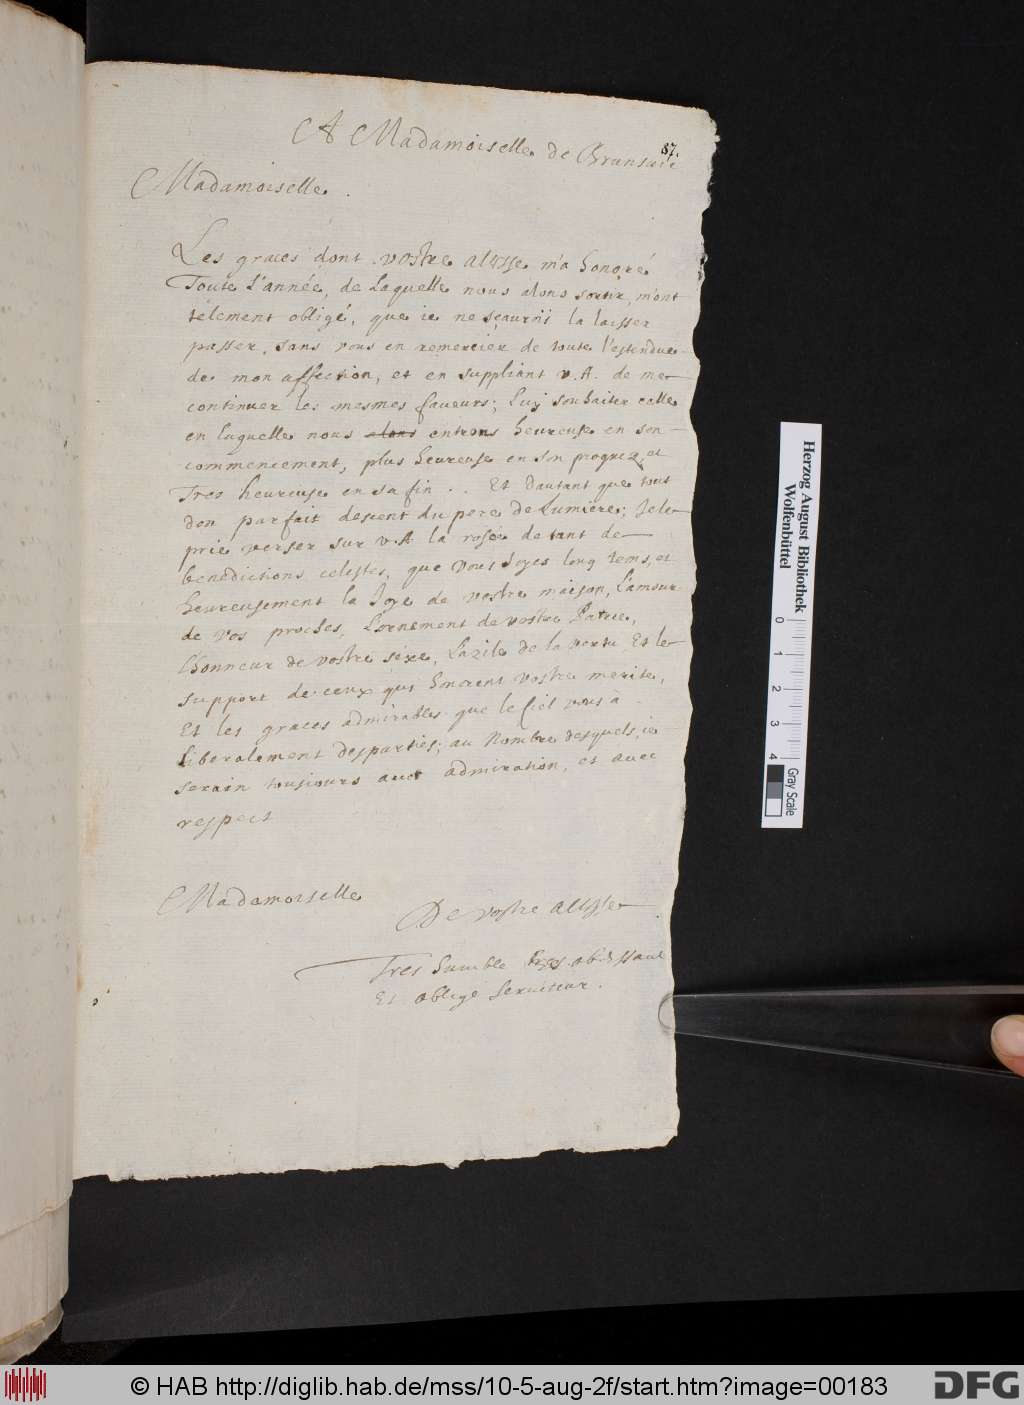 87.
A Madamoiselle de Brunsuic
Madamoiselle.
Les graces dont vostre altsse m'a honoré
Toute L'année, de Laquelle nous alons sortir, m'ont
télement obligé, que ie ne sçaurois la laisser
passer, sans vous en remercier de toute l'estendue
de mon affection, et en suppliant v. A. de me
continuer les mesmes faveurs; Luy souhaiter celle
en laquelle nous alons entrons heureuse en son
commencement, plus heureuse en son progrez et
Tres heureuse en sa fin. . Et dautant que tout
don parfait descent du pere de Lumiére; Je le
prie verser sur v. A la rosée de tant de
benedictions celestes, que vous soyes long tems, et
heureusement la Joye de vostre maison, L'amour
de vos proches, Lornement de vostre Patrie,
L'honneur de vostre séxe, Lazile de la vertu, Et le
support de ceux qui honorent vostre merite,
Et les graces admirables que le Ciel vous à
Liberalement desparties; au Nombre desquels, ie
seraij tousiours avec admiration, et avec
respect
Madamoiselle
De vostre altsse
Tres humble tres obeissant
Et obligé serviteur.
Herzog August Bibliothek
Wolfenbüttel
0 1 2 3 4
Gray Scale
© HAB http://diglib.hab.de/mss/10-5-aug-2f/start.htm?image=00183
DFG